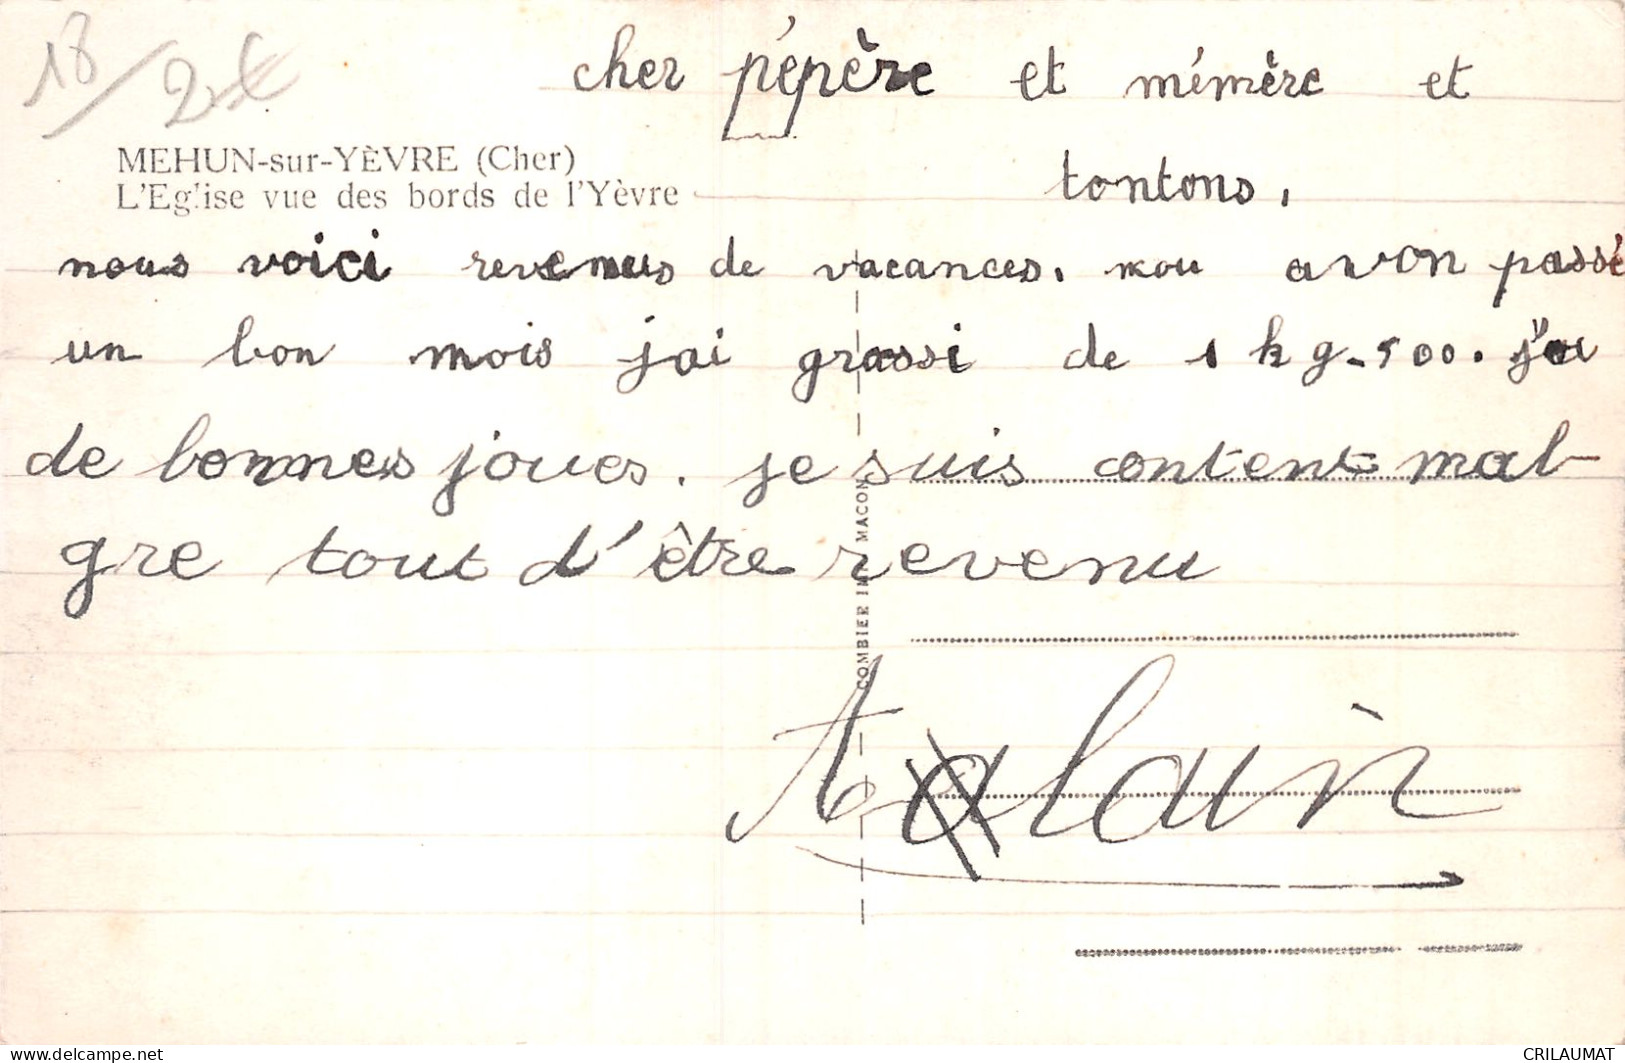 18/2€
cher pépère et mémère et
MEHUN-sur-YÈVRE (Cher)
L'Eglise vue des bords de l'Yèvre
tontons,
nous voici revenus de vacances. nou avon passé
un bon mois jai grossi de 1 kg-500. j'ai
de bonnes joues. je suis content mal-
gre tout d'être revenu
COMBIER IMP MACON
Alain
delcampe.net
CRILAUMAT